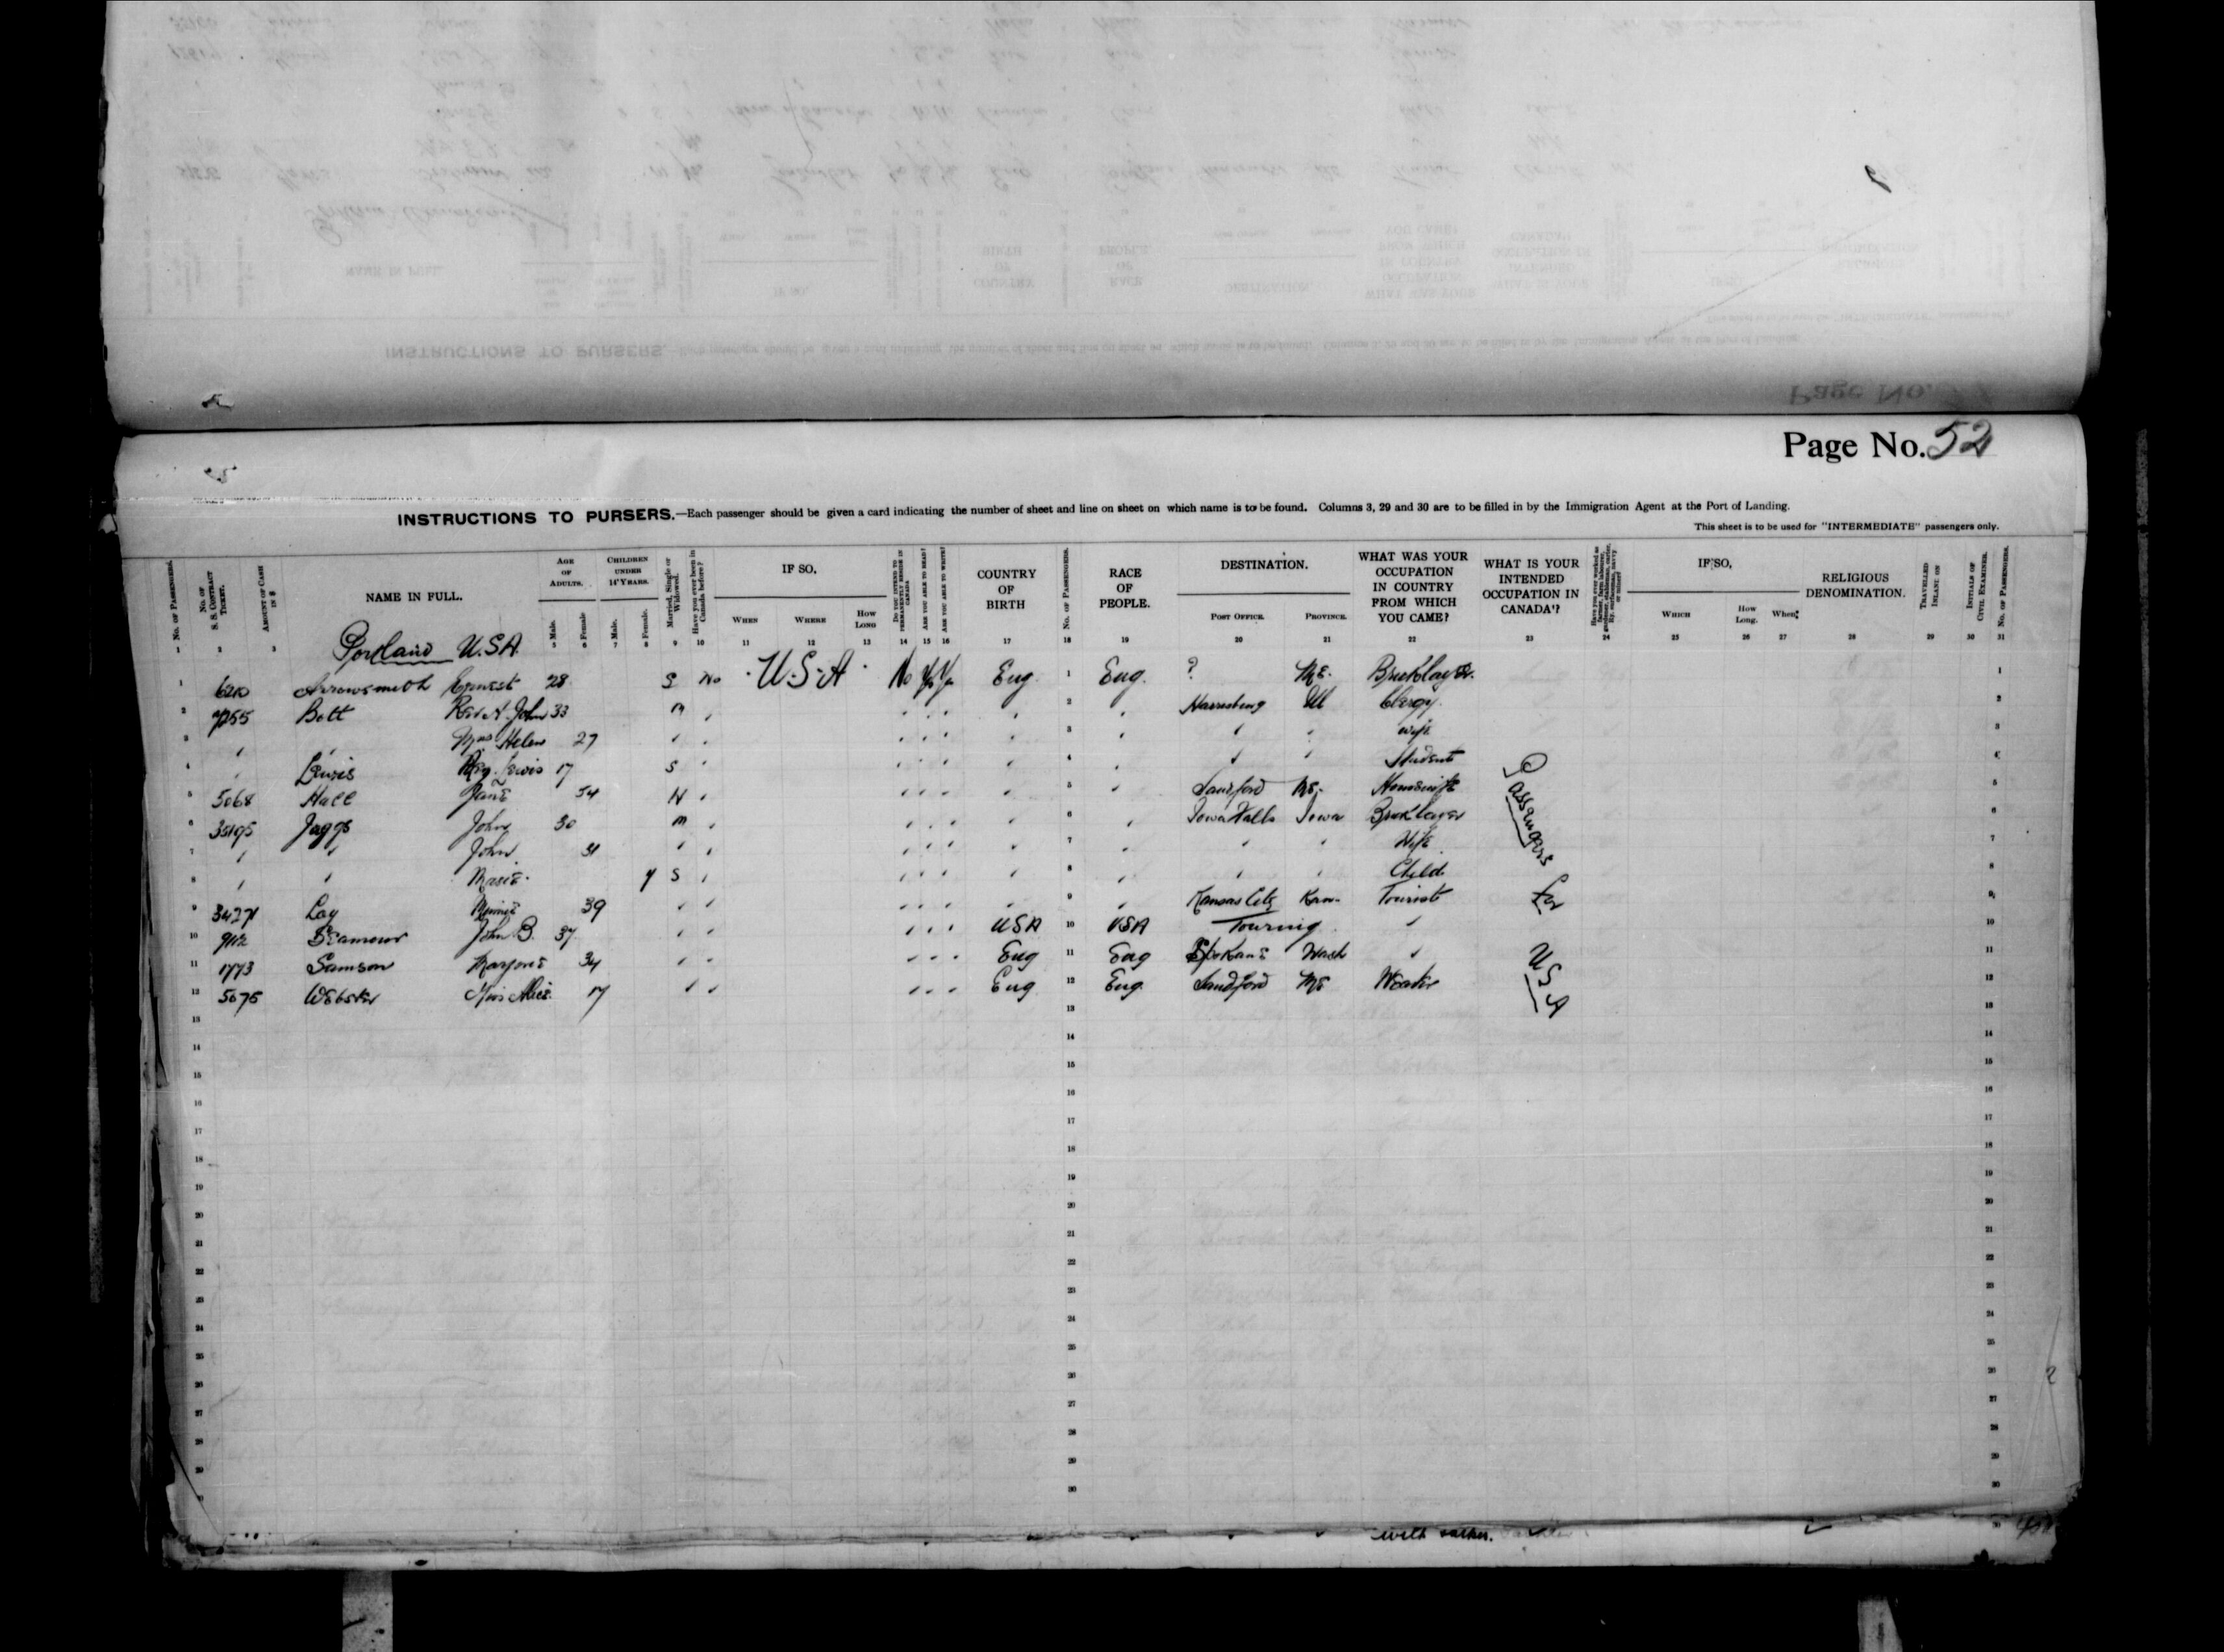 Page No. 52
INSTRUCTIONS TO PURSERS.—Each passenger should be given a card indicating the number of sheet and line on sheet on which name is to be found. Columns 3, 29 and 30 are to be filled in by the Immigration Agent at the Port of Landing.
This sheet is to be used for "INTERMEDIATE" passengers only.
No. of Passengers. No. of S. S. Contract Ticket. Amount of Cash in $ NAME IN FULL. Age of Adults. Male. Female Children under 14 Years. Male. Female. Married, Single or Widowed. Have you ever been in Canada before? IF SO, When Where How Long Do you intend to permanently reside in Canada Are you able to read? Are you able to write? COUNTRY OF BIRTH No. of Passengers. RACE OF PEOPLE. DESTINATION. Post Office. Province. WHAT WAS YOUR OCCUPATION IN COUNTRY FROM WHICH YOU CAME? WHAT IS YOUR INTENDED OCCUPATION IN CANADA? IF SO, Which How Long. When. RELIGIOUS DENOMINATION. Travelled Inland on Initials of Civil Examiner. No. of Passengers.
1 2 3 5 6 7 8 9 10 11 12 13 14 15 16 17 18 19 20 21 22 23 24 25 26 27 28 29 30 31
Portland U.S.A.
1 6210 Arrowsmith Ernest 28 S No U.S.A No Ys Ys Eng 1 Eng. ? Me. Bricklayer. 1
2 7255 Bott Rev A. John 33 M " " " " " 2 " Harrisburg Ill Clergy 2
3 " " Mrs Helen 27 " " " " " " 3 " " " wife 3
4 " Lewis Reg. Lewis 17 S " " " " " 4 " " " Student 4
5 5068 Hall Jane 54 W " " " " " 5 " Sandford Me. Housewife 5
6 35195 Jaggs John 30 M " " " " " 6 " Iowa Falls Iowa Bricklayer 6
7 " " John 31 " " " " " " 7 " " " Wife 7
8 " " Marie 7 S " " " " " 8 " " " Child 8
9 34271 Lay Minnie 39 " " " " " " 9 " Kansas City Kan. Tourist 9
10 9112 John B. 37 " " " " " USA 10 USA Touring " 10
11 1773 Samson Marjorie 34 " " " " " Eng 11 Eng Spokane Wash " 11
12 5075 Webster Miss Alice 17 " " " " " Eng 12 Eng. Sandford Me Weaver 12
Passengers for USA
13 13 13
14 14 14
15 15 15
16 16 16
17 17 17
18 18 18
19 19 19
20 20 20
21 21 21
22 22 22
23 23 23
24 24 24
25 25 25
26 26 26
27 27 27
28 28 28
29 29 29
30 30 30
with